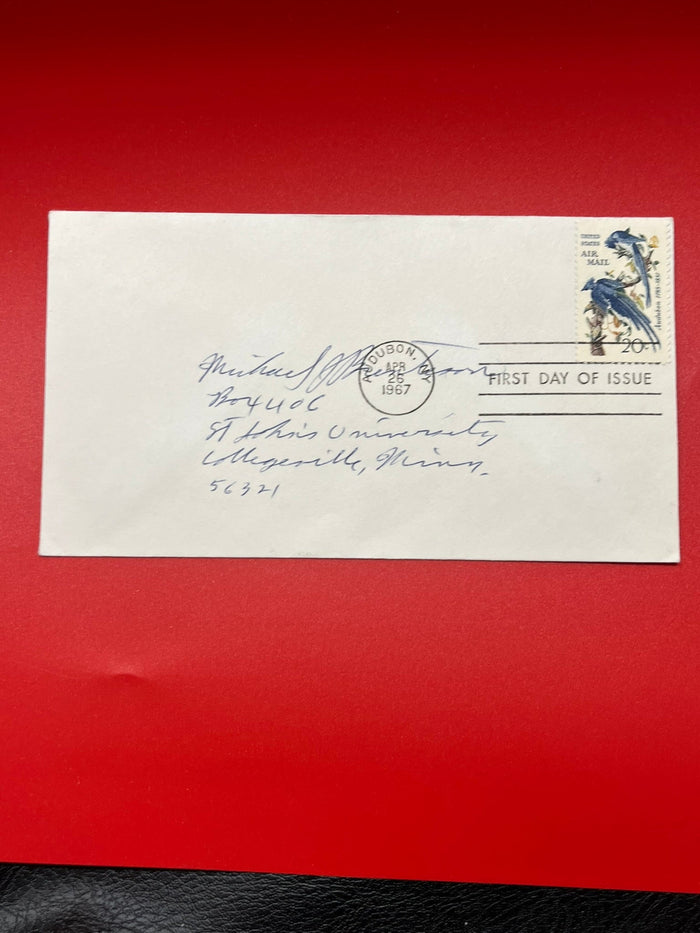 UNITED
STATES
AIR
MAIL
Audubon 1785-1851
20c
AUDUBON, NY
APR
26
1967
FIRST DAY OF ISSUE
Michael J
Box 4406
St John's University
Collegeville, Minn.
56321